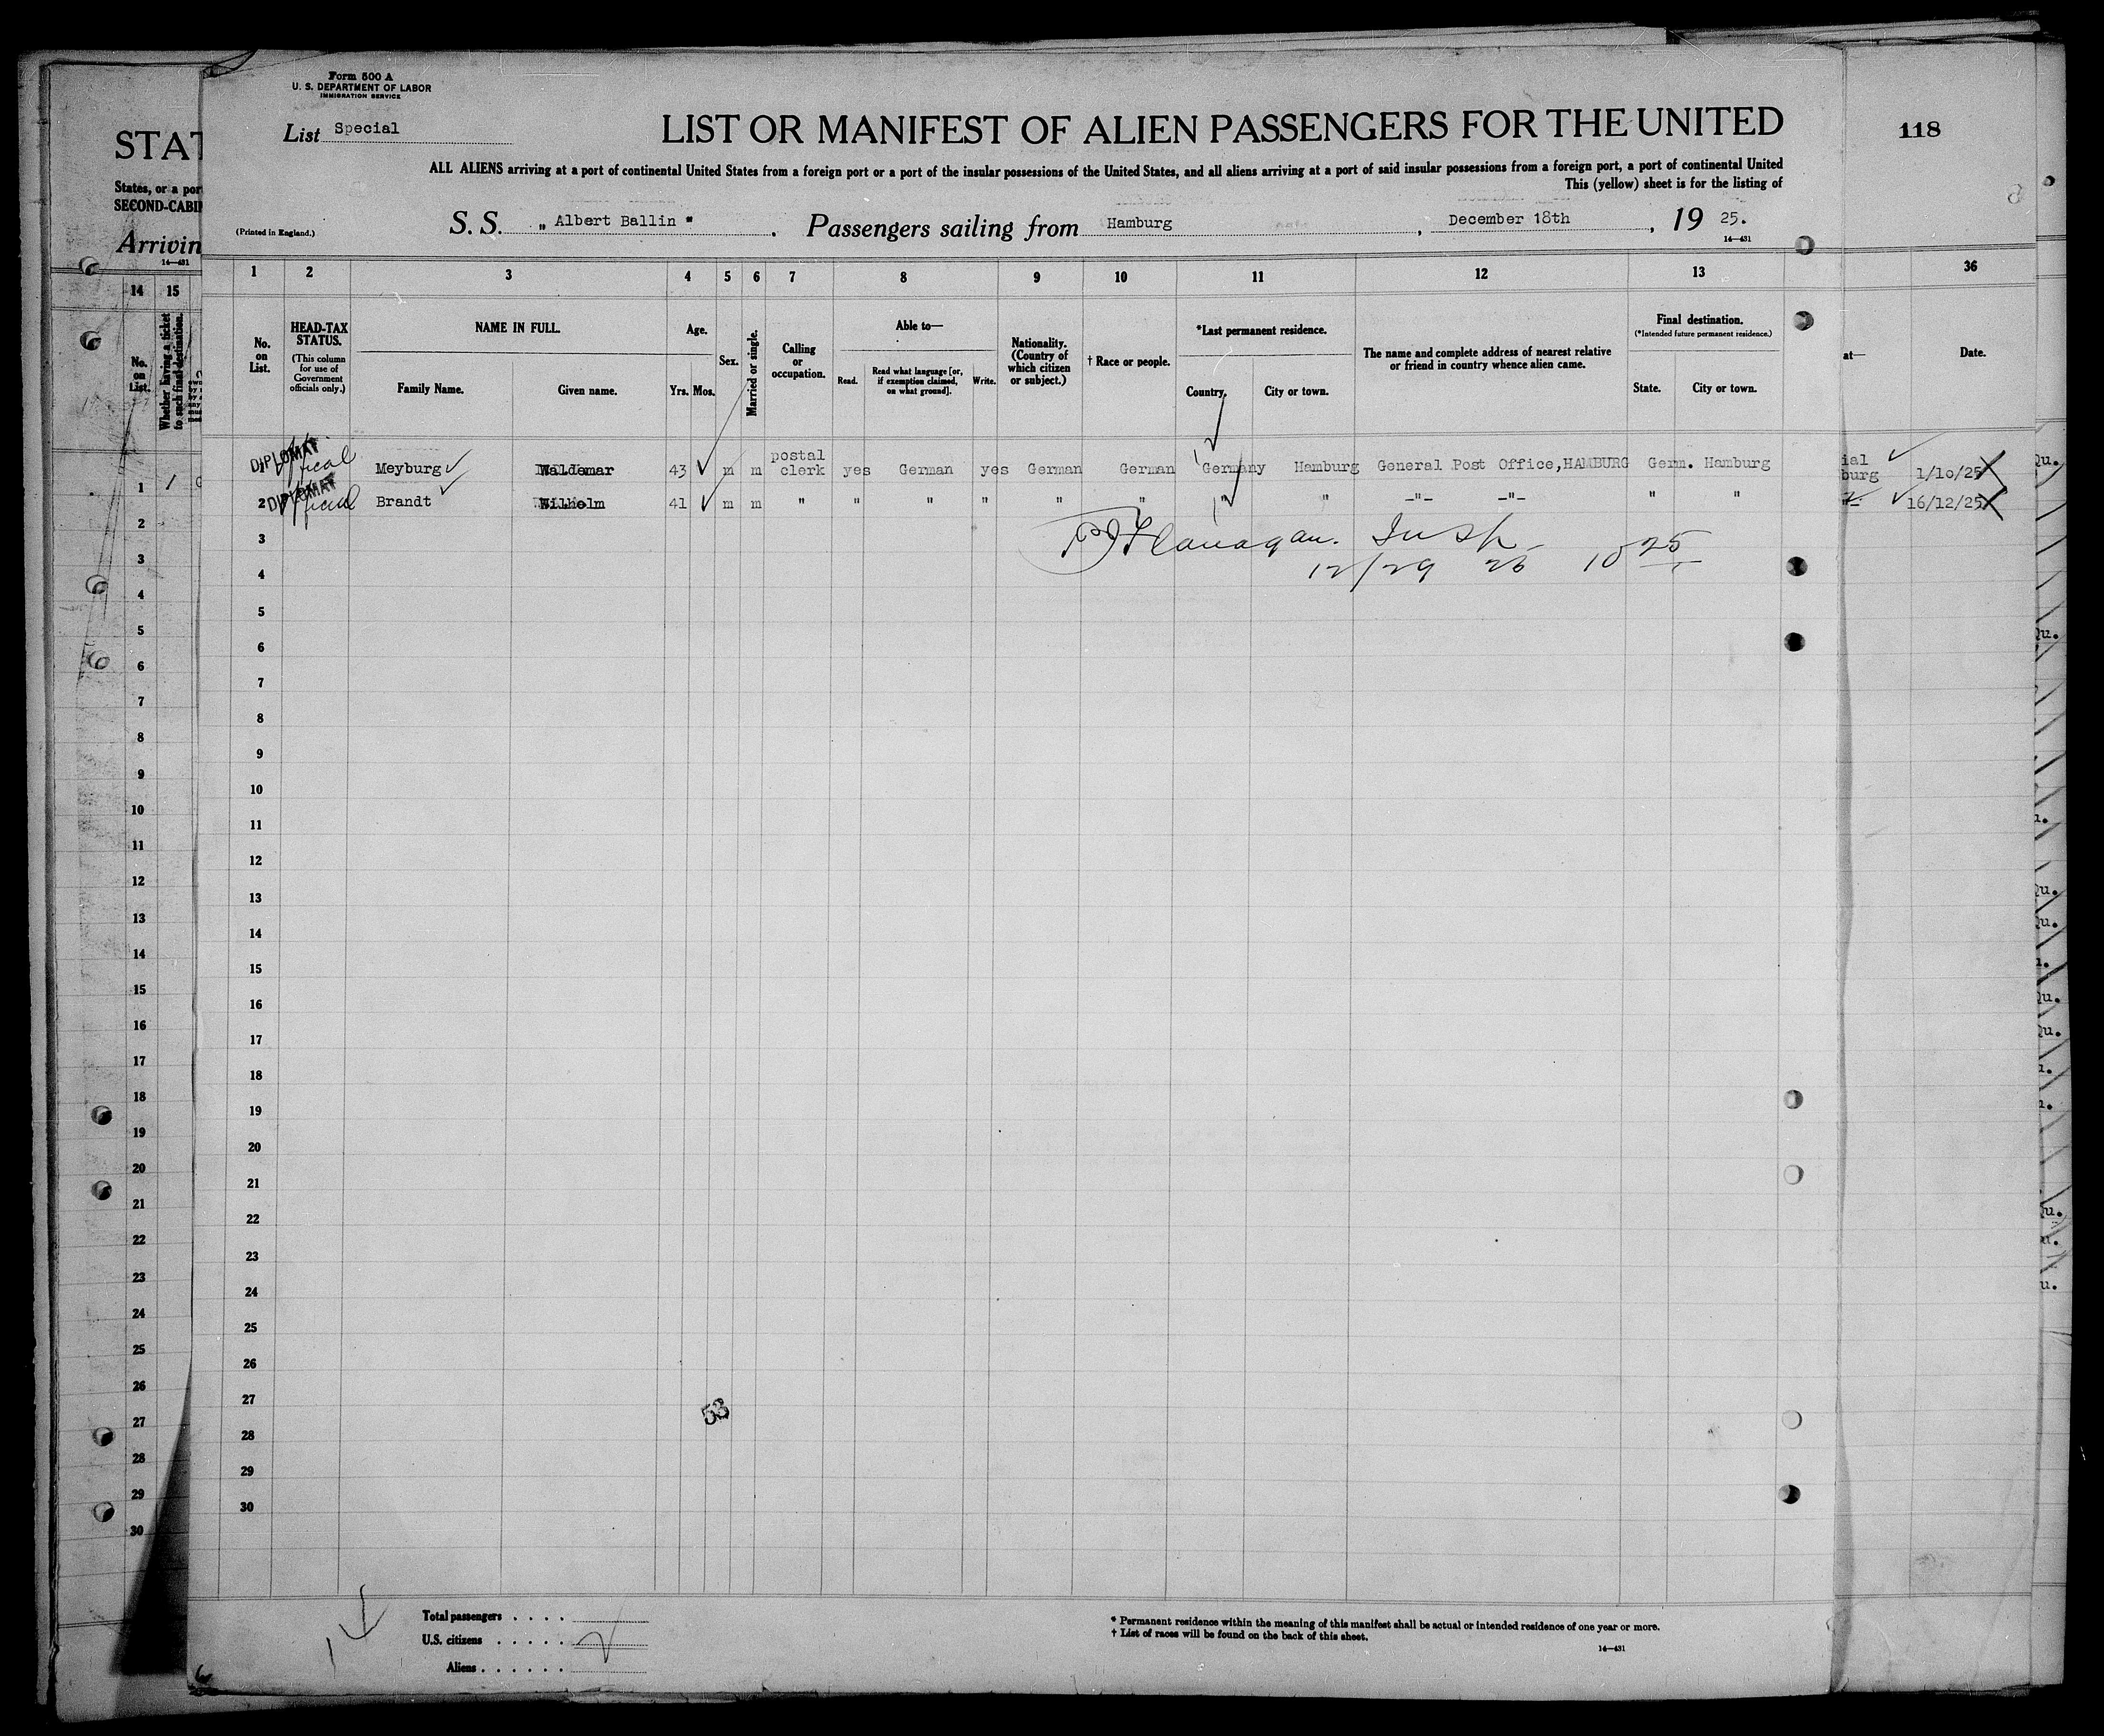 Form 500 A
U. S. DEPARTMENT OF LABOR
IMMIGRATION SERVICE
List Special
LIST OR MANIFEST OF ALIEN PASSENGERS FOR THE UNITED
118
STAT
ALL ALIENS arriving at a port of continental United States from a foreign port or a port of the insular possessions of the United States, and all aliens arriving at a port of said insular possessions from a foreign port, a port of continental United
This (yellow) sheet is for the listing of
States, or a por
SECOND-CABI
Arrivin
14—431
(Printed in England.)
S. S. „ Albert Ballin " . Passengers sailing from Hamburg , December 18th , 19 25.
14—431
1 2 3 4 5 6 7 8 9 10 11 12 13 36
14 15
No. on List.
Whether having a ticket to such final destination.
No. on List.
HEAD-TAX STATUS.
(This column for use of Government officials only.)
NAME IN FULL.
Family Name. Given name.
Age.
Yrs. Mos.
Sex.
Married or single.
Calling or occupation.
Able to—
Read. Read what language [or, if exemption claimed, on what ground]. Write.
Nationality. (Country of which citizen or subject.)
† Race or people.
*Last permanent residence.
Country. City or town.
The name and complete address of nearest relative or friend in country whence alien came.
Final destination.
(*Intended future permanent residence.)
State. City or town.
at—
Date.
DIPLOMAT
official
1 Meyburg Waldemar 43 m m postal clerk yes German yes German German Germany Hamburg General Post Office,HAMBURG Germ. Hamburg
ial
burg 1/10/25
Qu.
DIPLOMAT
official
2 Brandt Wilhelm 41 m m " " " " " " " " -"- -"- " "
"- 16/12/25
Flanagan. Insp.
12/29 26 10 25
3
4
5
6
7
8
9
10
11
12
13
14
15
16
17
18
19
20
21
22
23
24
25
26
27
28
29
30
53
1
2
3
4
5
6
7
8
9
10
11
12
13
14
15
16
17
18
19
20
21
22
23
24
25
26
27
28
29
30
Total passengers . . . .
U.S. citizens . . . . .
Aliens . . . . . .
* Permanent residence within the meaning of this manifest shall be actual or intended residence of one year or more.
† List of races will be found on the back of this sheet.
14—431